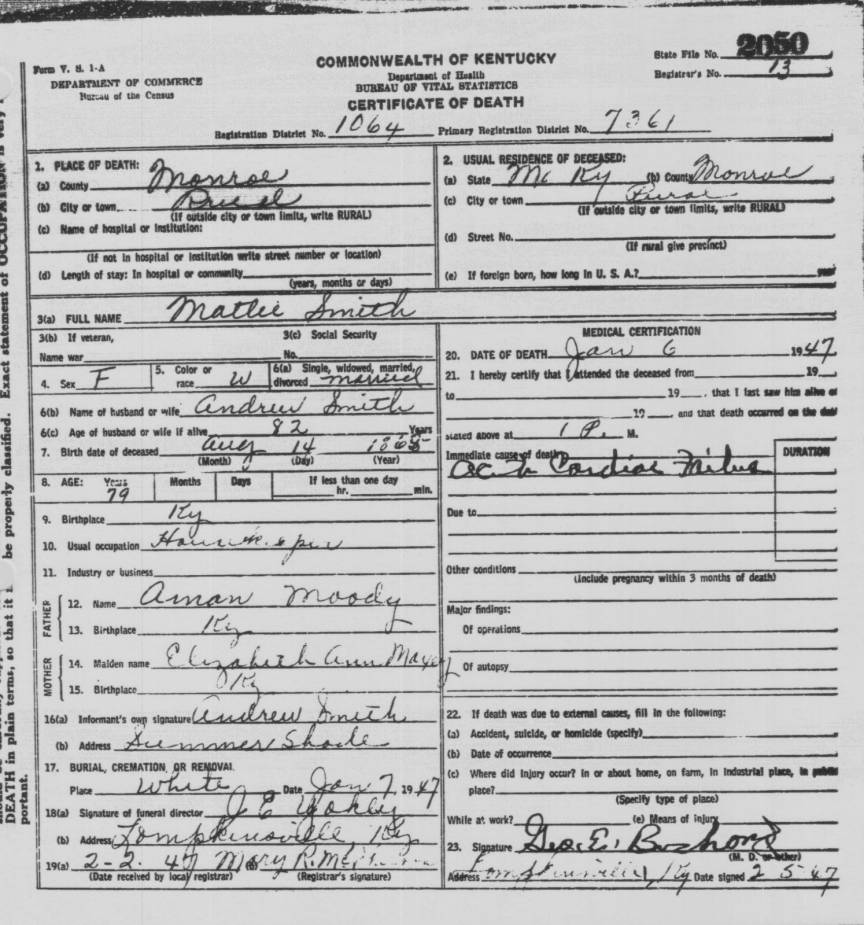 State File No. 2050
Form V. S. 1-A
DEPARTMENT OF COMMERCE
Bureau of the Census
COMMONWEALTH OF KENTUCKY
Department of Health
BUREAU OF VITAL STATISTICS
CERTIFICATE OF DEATH
Registrar's No. 13
Registration District No. 1064 Primary Registration District No. 7361
1. PLACE OF DEATH:
(a) County Monroe
(b) City or town Rural
(If outside city or town limits, write RURAL)
(c) Name of hospital or institution:
(If not in hospital or institution write street number or location)
(d) Length of stay: In hospital or community
(years, months or days)
2. USUAL RESIDENCE OF DECEASED:
(a) State Ky (b) County Monroe
(c) City or town Rural
(If outside city or town limits, write RURAL)
(d) Street No.
(If rural give precinct)
(e) If foreign born, how long in U. S. A.? year
3(a) FULL NAME Mattie Smith
3(b) If veteran,
Name war
3(c) Social Security
No.
4. Sex F
5. Color or
race W
6(a) Single, widowed, married,
divorced married
6(b) Name of husband or wife Andrew Smith
6(c) Age of husband or wife if alive 82 Years
7. Birth date of deceased Aug 14
(Month) (Day) (Year)
8. AGE: Years Months Days If less than one day
79 hr. min.
9. Birthplace Ky
10. Usual occupation
11. Industry or business
FATHER
12. Name Aman Moody
13. Birthplace Ky
MOTHER
14. Maiden name Elizabeth Ann Maxey
15. Birthplace Ky
16(a) Informant's own signature Andrew Smith
(b) Address Summer Shade
17. BURIAL, CREMATION, OR REMOVAL
Place White Date Jan 7, 1947
18(a) Signature of funeral director J E Yokley
(b) Address Tompkinsville Ky
19(a) 2-2-47 (b) Mary R.
(Date received by local registrar) (Registrar's signature)
MEDICAL CERTIFICATION
20. DATE OF DEATH Jan 6 1947
21. I hereby certify that I attended the deceased from 19
to 19 , that I last saw him alive on
19 , and that death occurred on the date
stated above at 1 P. M.
Immediate cause of death DURATION
Cardiac
Due to
Other conditions
(Include pregnancy within 3 months of death)
Major findings:
Of operations
Of autopsy
22. If death was due to external causes, fill in the following:
(a) Accident, suicide, or homicide (specify)
(b) Date of occurrence
(c) Where did injury occur? In or about home, on farm, in industrial place, in public
place?
(Specify type of place)
While at work? (e) Means of injury
23. Signature Geo. E. Bushong
(M. D. or other)
Address Tompkinsville, Ky Date signed 2-5-47
DEATH in plain terms, so that it
be properly classified. Exact statement of OCCUPATION is very
portant.